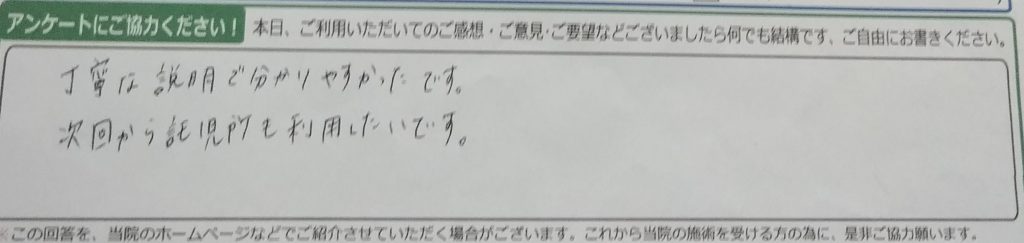 アンケートにご協力ください! 本日、ご利用いただいてのご感想・ご意見・ご要望などございましたら何でも結構です、ご自由にお書きください。
丁寧な説明で分かりやすかったです。
次回から託児所も利用したいです。
※この回答を、当院のホームページなどでご紹介させていただく場合がございます。これから当院の施術を受ける方の為に、是非ご協力願います。